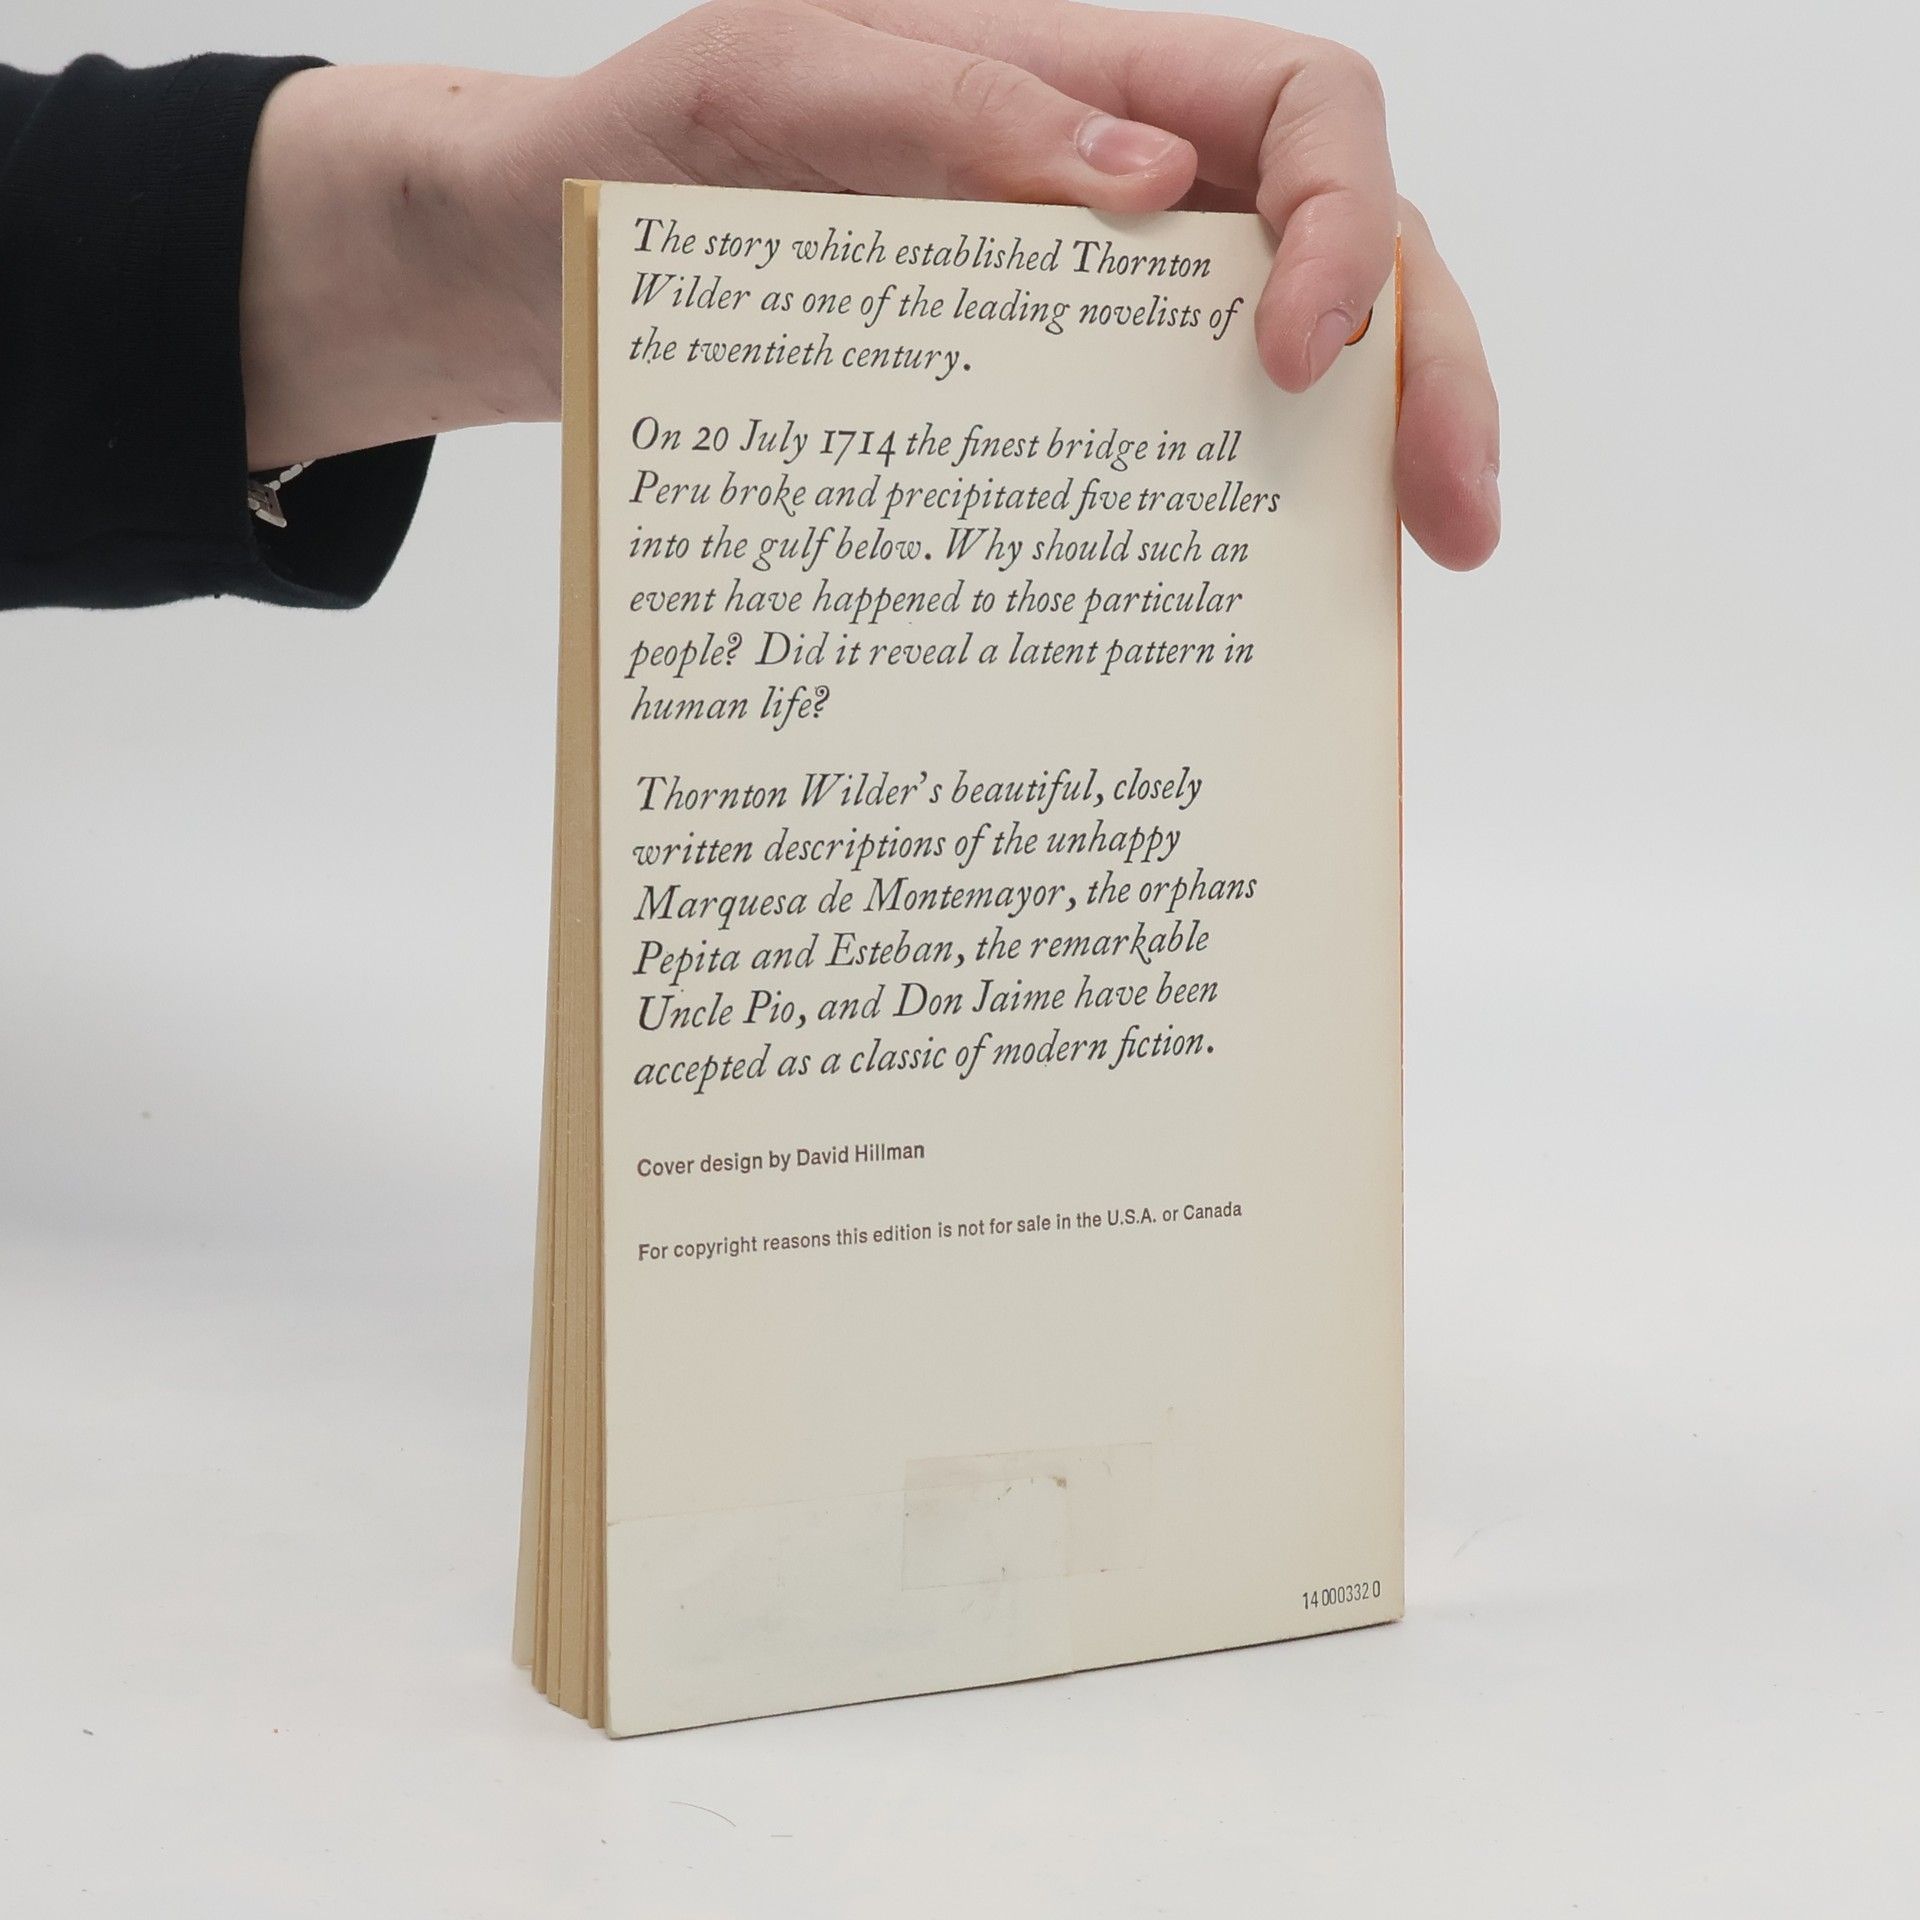 The story which established Thornton
Wilder as one of the leading novelists of
the twentieth century.
On 20 July 1714 the finest bridge in all
Peru broke and precipitated five travellers
into the gulf below. Why should such an
event have happened to those particular
people? Did it reveal a latent pattern in
human life?
Thornton Wilder's beautiful, closely
written descriptions of the unhappy
Marquesa de Montemayor, the orphans
Pepita and Esteban, the remarkable
Uncle Pio, and Don Jaime have been
accepted as a classic of modern fiction.
Cover design by David Hillman
For copyright reasons this edition is not for sale in the U.S.A. or Canada
14 000332 0